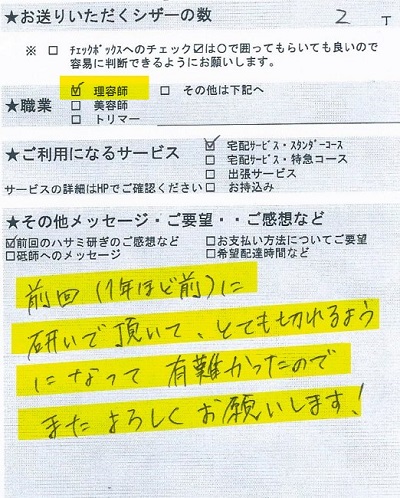 ★お送りいただくシザーの数 2 丁
※ □ ﾁｪｯｸﾎﾞｯｸｽへのチェック☑は○で囲ってもらいても良いので
容易に判断できるようにお願いします。
☑ 理容師 □ その他は下記へ
★職業 □ 美容師
□ トリマー
★ご利用になるサービス ☑ 宅配ｻｰﾋﾞｽ・ｽﾀﾝﾀﾞｰｺｰｽ
□ 宅配ｻｰﾋﾞｽ・特急コース
□ 出張サービス
サービスの詳細はHPでご確認ください □ お持込み
★その他メッセージ・ご要望・・ご感想など
☑前回のハサミ研ぎのご感想など □お支払い方法についてご要望
□砥師へのメッセージ □希望配達時間など
前回(1年ほど前)に
研いで頂いて、とても切れるよう
になって 有難かったので
またよろしくお願いします!